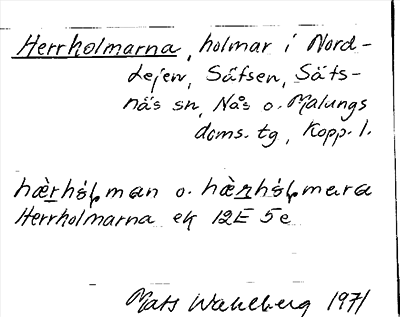 Herrholmarna, holmar i Nord-
dejen, Säfsen, Säfs-
näs sn, Nås o. Malungs
doms. tg, Kopp. l.
man o. mara
Herrholmarna ek 12E 5e
Mats Wahlberg 1971